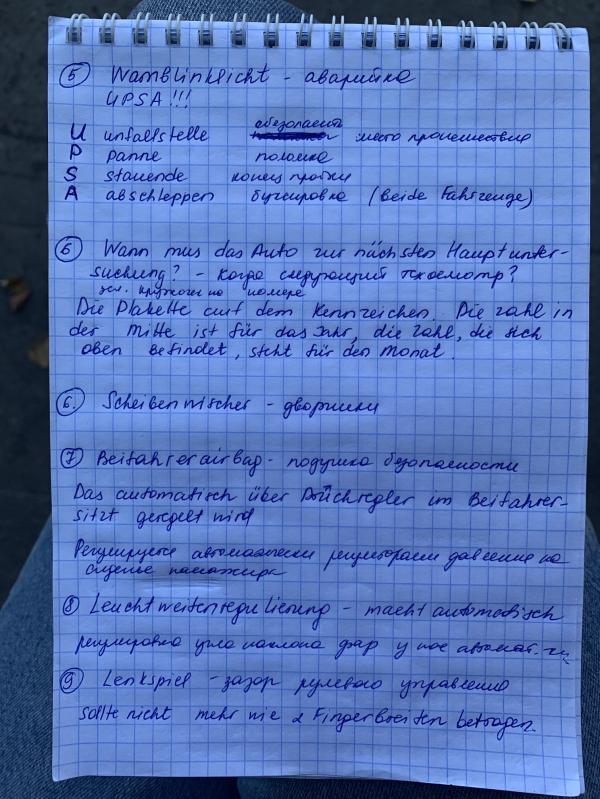 5 Warnblinklicht - аварийка
UPSA!!!
U unfallstelle обезопасить место происшествия
P panne поломка
S stauende конец пробки
A abschleppen буксировка (beide Fahrzeuge)
6 Wann mus das Auto zur nächsten Hauptunter-
suchung? - Когда следующий техосмотр?
зел. кружочки на номере
Die Plakette auf dem Kennzeichen. Die zahl in
der mitte ist für das Jahr, die zahl, die sich
oben befindet, steht für den monat.
6. Scheibenwischer - дворники
7 Beifahrerairbag - подушка безопасности
Das automatisch über Drückregler im Beifahrer-
sitzt geregelt wird
Регулируется автоматически регулятором давления на
сиденье пассажира
8 Leuchtweitenregulierung - macht automatisch
регулировка угла наклона фар у нас автомат.
9 Lenkspiel - зазор рулевого управления
sollte nicht mehr wie 2 Fingerbreiten betragen.